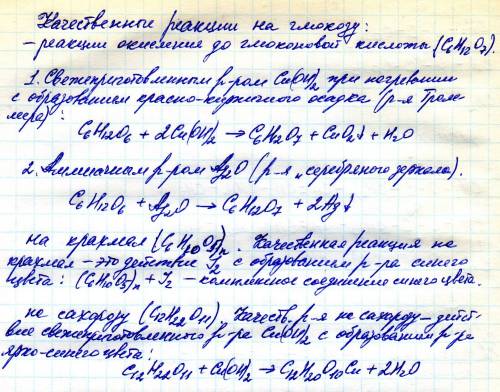 Качественные реакции на глюкозу:
– реакции окисления до глюконовой кислоты (C6H12O7).
1. Свежеприготовленным р-ром Cu(OH)2 при нагревании
с образованием красно-кирпичного осадка (р-я Трам-
мера):
C6H12O6 + 2Cu(OH)2 → C6H12O7 + CuO2↓ + H2O
2. Аммиачным р-ром Ag2O (р-я „серебряного зеркала).
C6H12O6 + Ag2O → C6H12O7 + 2Ag↓
на крахмал (C6H10O5)n. Качественная реакция на
крахмал – это действие I2 с образованием р-ра синего
цвета: (C6H10O5)n + I2 – комплексное соединение синего цвета.
на сахарозу (C12H22O11). Качеств. р-я на сахарозу – дейст-
вие свежеприготовленного р-ра Cu(OH)2 с образованием р-ра
ярко-синего цвета:
C12H22O11 + Cu(OH)2 → C12H20O10Cu + 2H2O